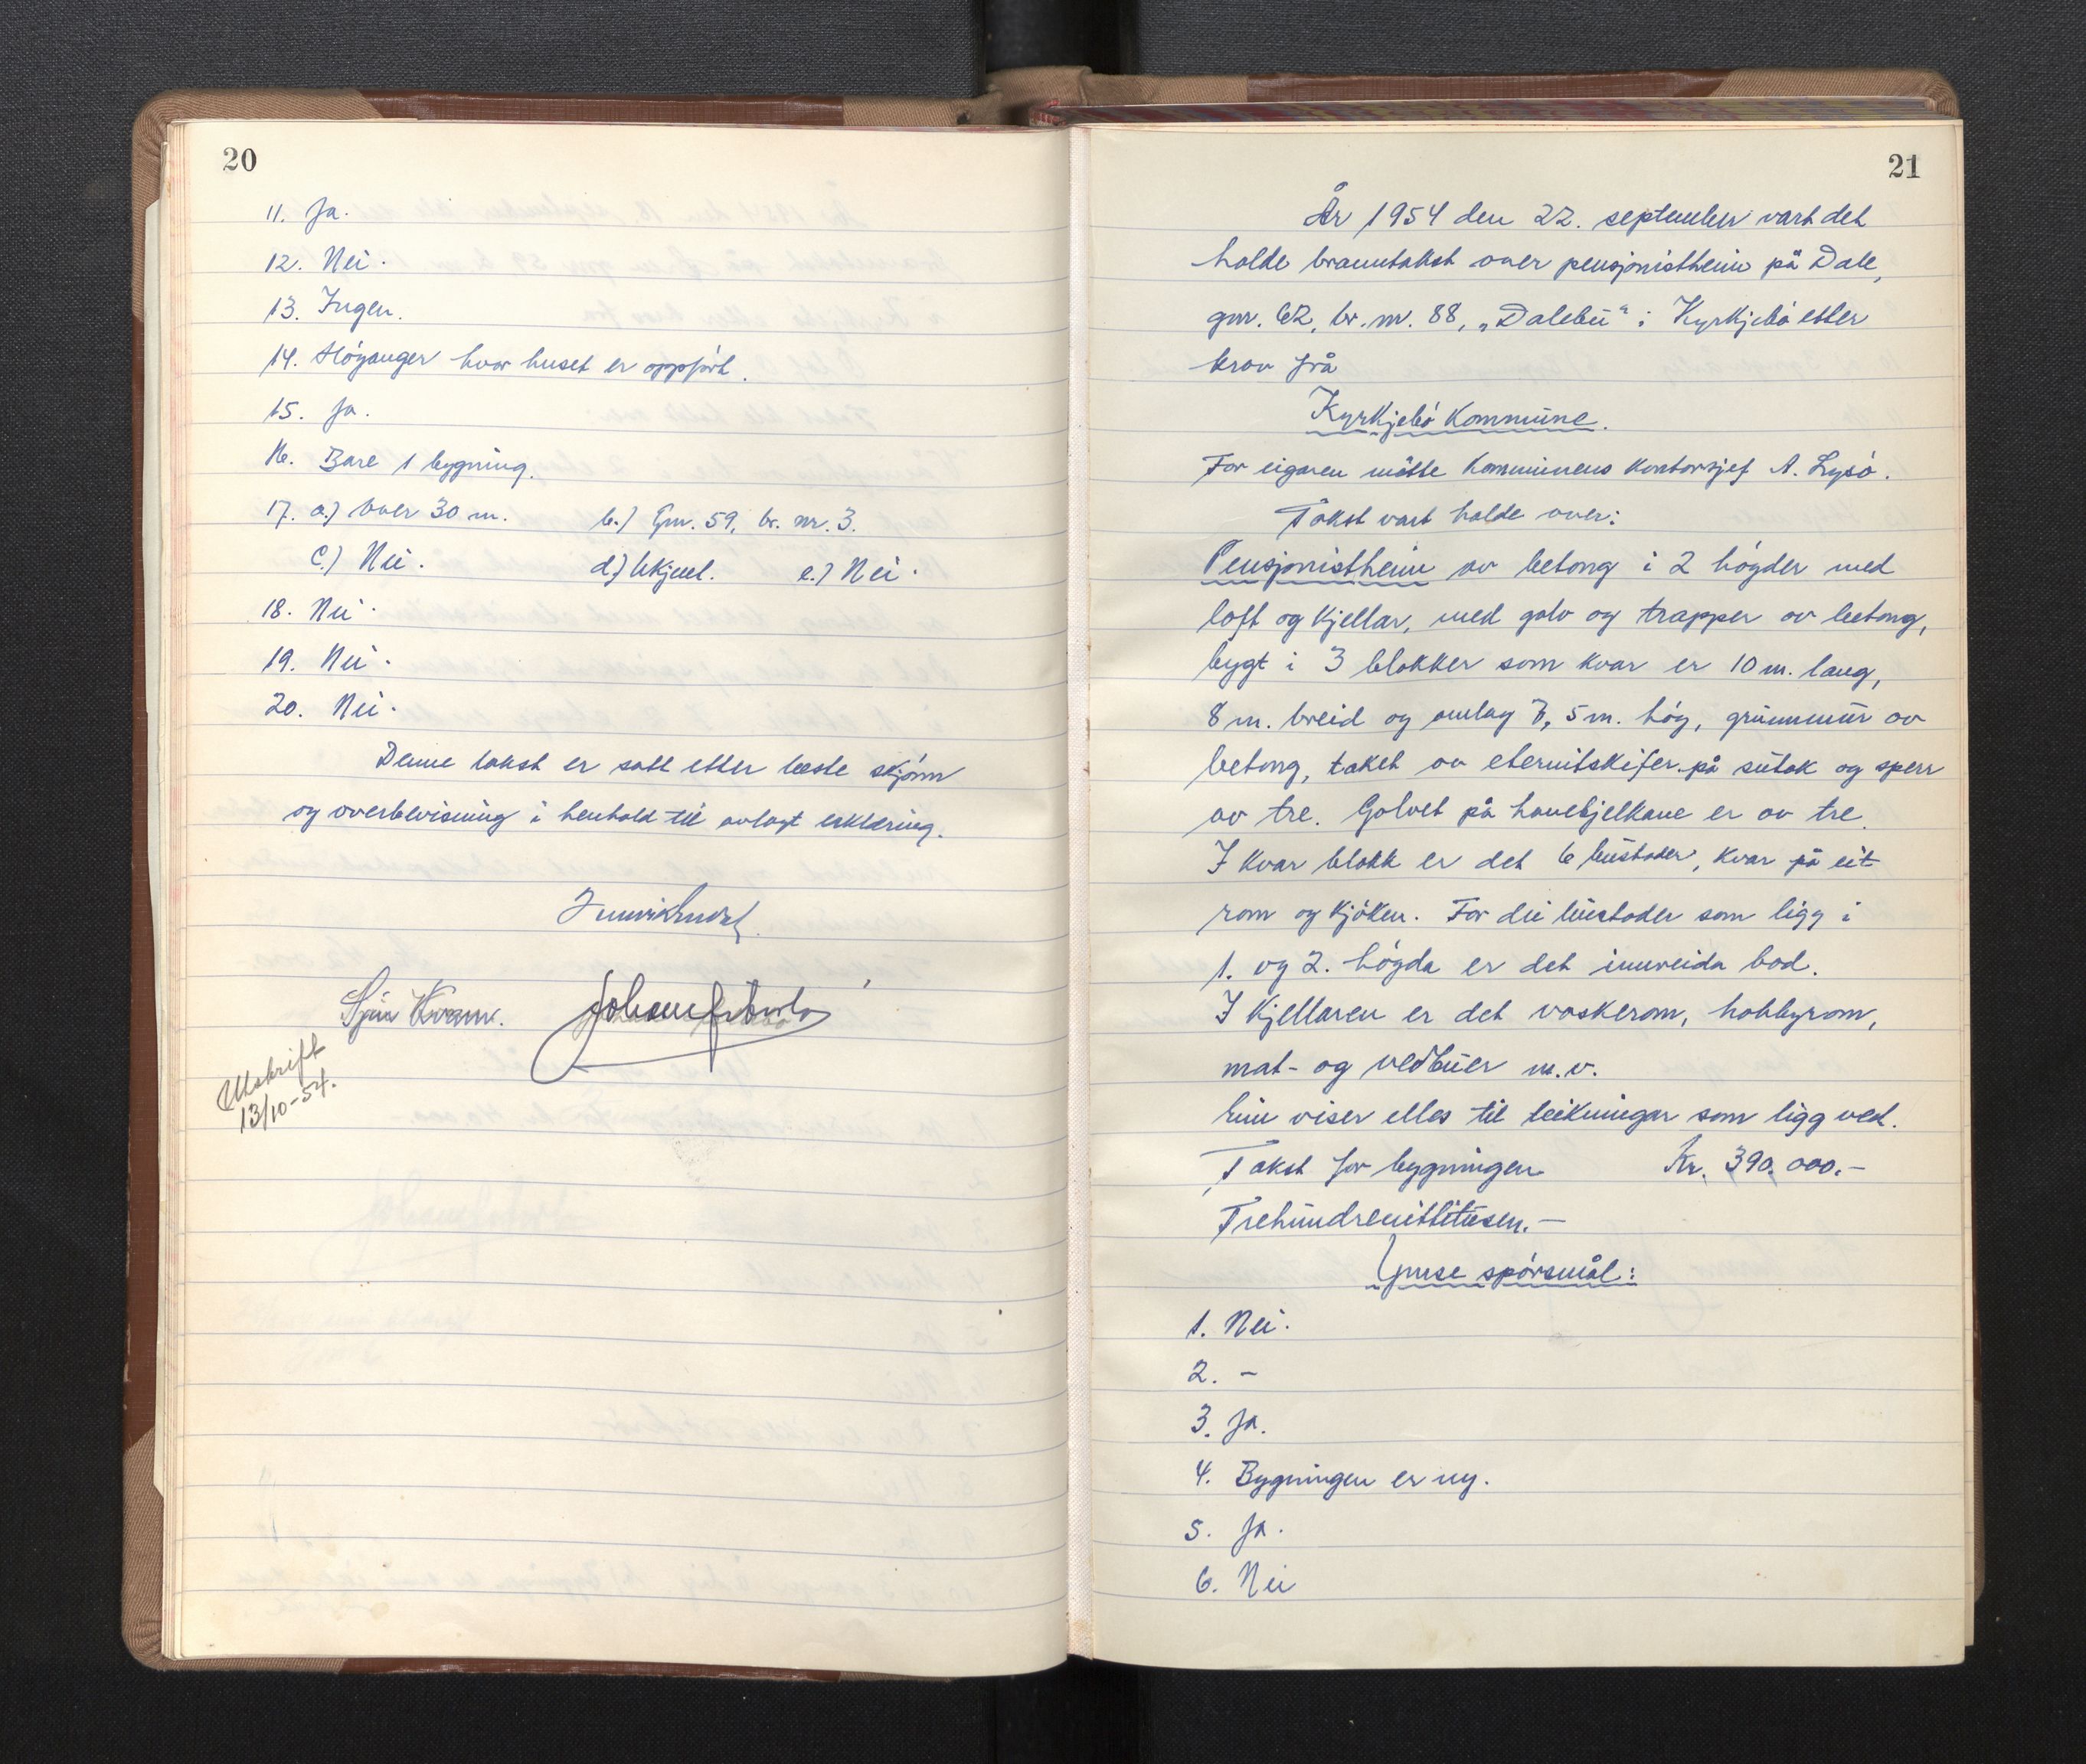 20
11. Ja.
12. Nei.
13. Ingen.
14. Høyanger hvor huset er oppført.
15. Ja.
16. Bare 1 bygning.
17. a.) Over 30 m. b.) Gnr. 59, br. nr. 3.
c.) Nei. d.) Ukjent. e.) Nei.
18. Nei.
19. Nei.
20. Nei.
Denne takst er satt etter beste skjønn
og overbevisning i henhold til avlagt erklæring.
Kvamme.
Utskrift
13/10-54.
21
År 1954 den 22. september vart det
halde branntakst over pensjonistheim på Dale,
gnr. 62, br. nr. 88, „Dalebu“ i Kyrkjebø etter
krav frå
Kyrkjebø Kommune.
For eigaren møtte kommunens kontorsjef A. Lysø.
Takst vart halde over:
Pensjonistheim av betong i 2 høgder med
loft og kjellar, med golv og trapper av betong,
bygt i 3 blokker som kvar er 10 m. lang,
8 m. breid og omlag 7,5 m. høg, grunnmur av
betong, taket av eternitskifer på sutak og sperr
av tre. Golvet på hanebjelkane er av tre.
I kvar blokk er det 6 bustader, kvar på eit
rom og kjøken. For dei bustader som ligg i
1. og 2. høgda er det innreida bod.
I kjellaren er det vaskerom, hobbyrom,
mat- og vedbuer m.v.
Ein viser elles til teikningar som ligg ved.
Takst for bygningen Kr. 390.000.-
Trehundrenittitusen.-
Ymse spørsmål:
1. Nei.
2. -
3. Ja.
4. Bygningen er ny.
5. Ja.
6. Nei